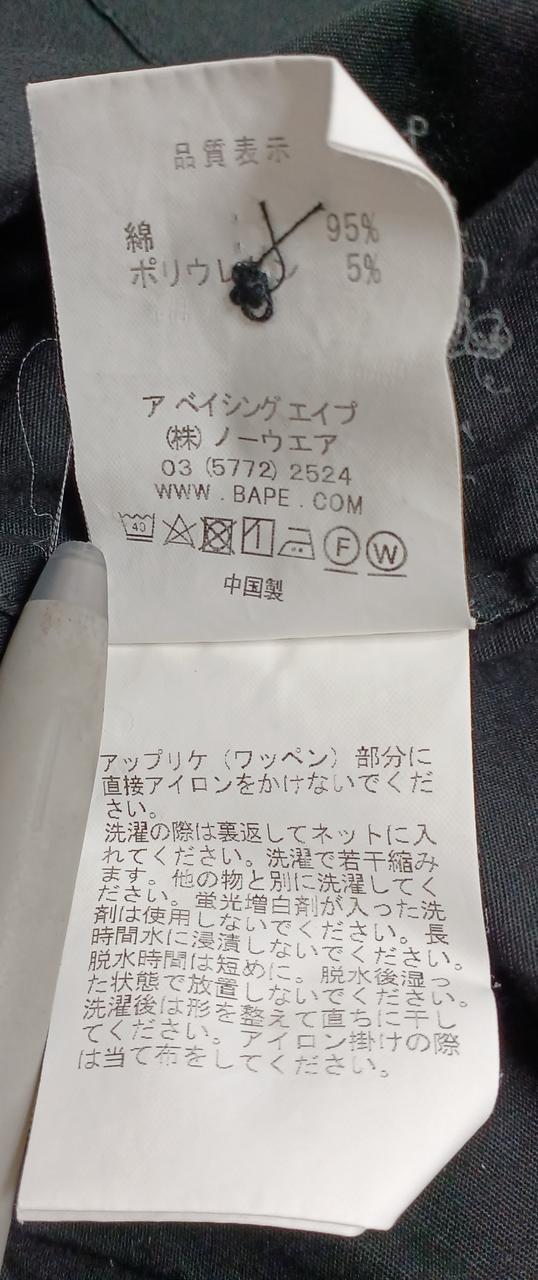 品質表示
綿 95%
ポリウレタン 5%
ア ベイシング エイプ
(株) ノーウエア
03 (5772) 2524
WWW . BAPE . COM
40
F W
中国製
アップリケ（ワッペン）部分に
直接アイロンをかけないでくだ
さい。
洗濯の際は裏返してネットに入
れてください。洗濯で若干縮み
ます。他の物と別に洗濯してく
ださい。蛍光増白剤が入った洗
剤は使用しないでください。長
時間水に浸漬しないでください。
脱水時間は短めに。脱水後湿っ
た状態で放置しないでください。
洗濯後は形を整えて直ちに干し
てください。アイロン掛けの際
は当て布をしてください。